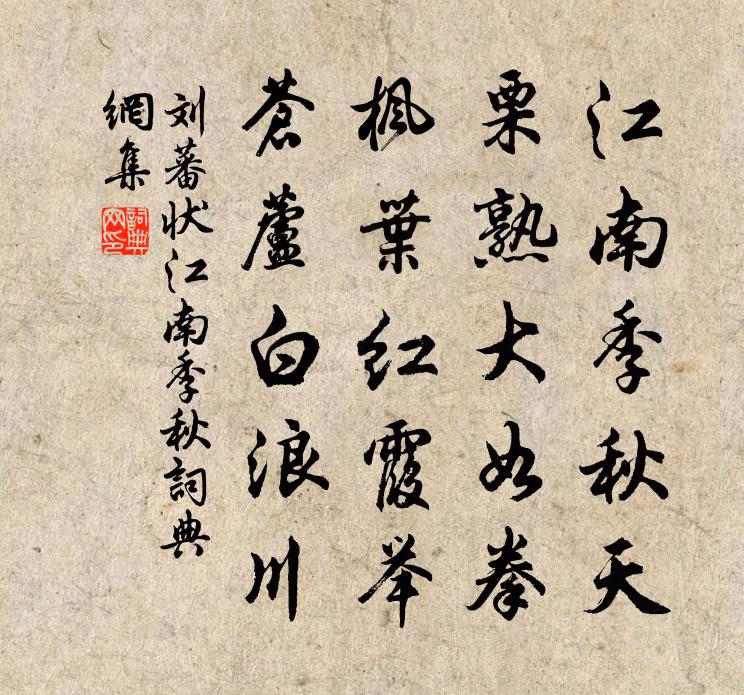 江南季秋天
栗熟大如拳
枫葉红霞举
蒼蘆白浪川
刘蕃状江南季秋詞典
網集
詞典
网印